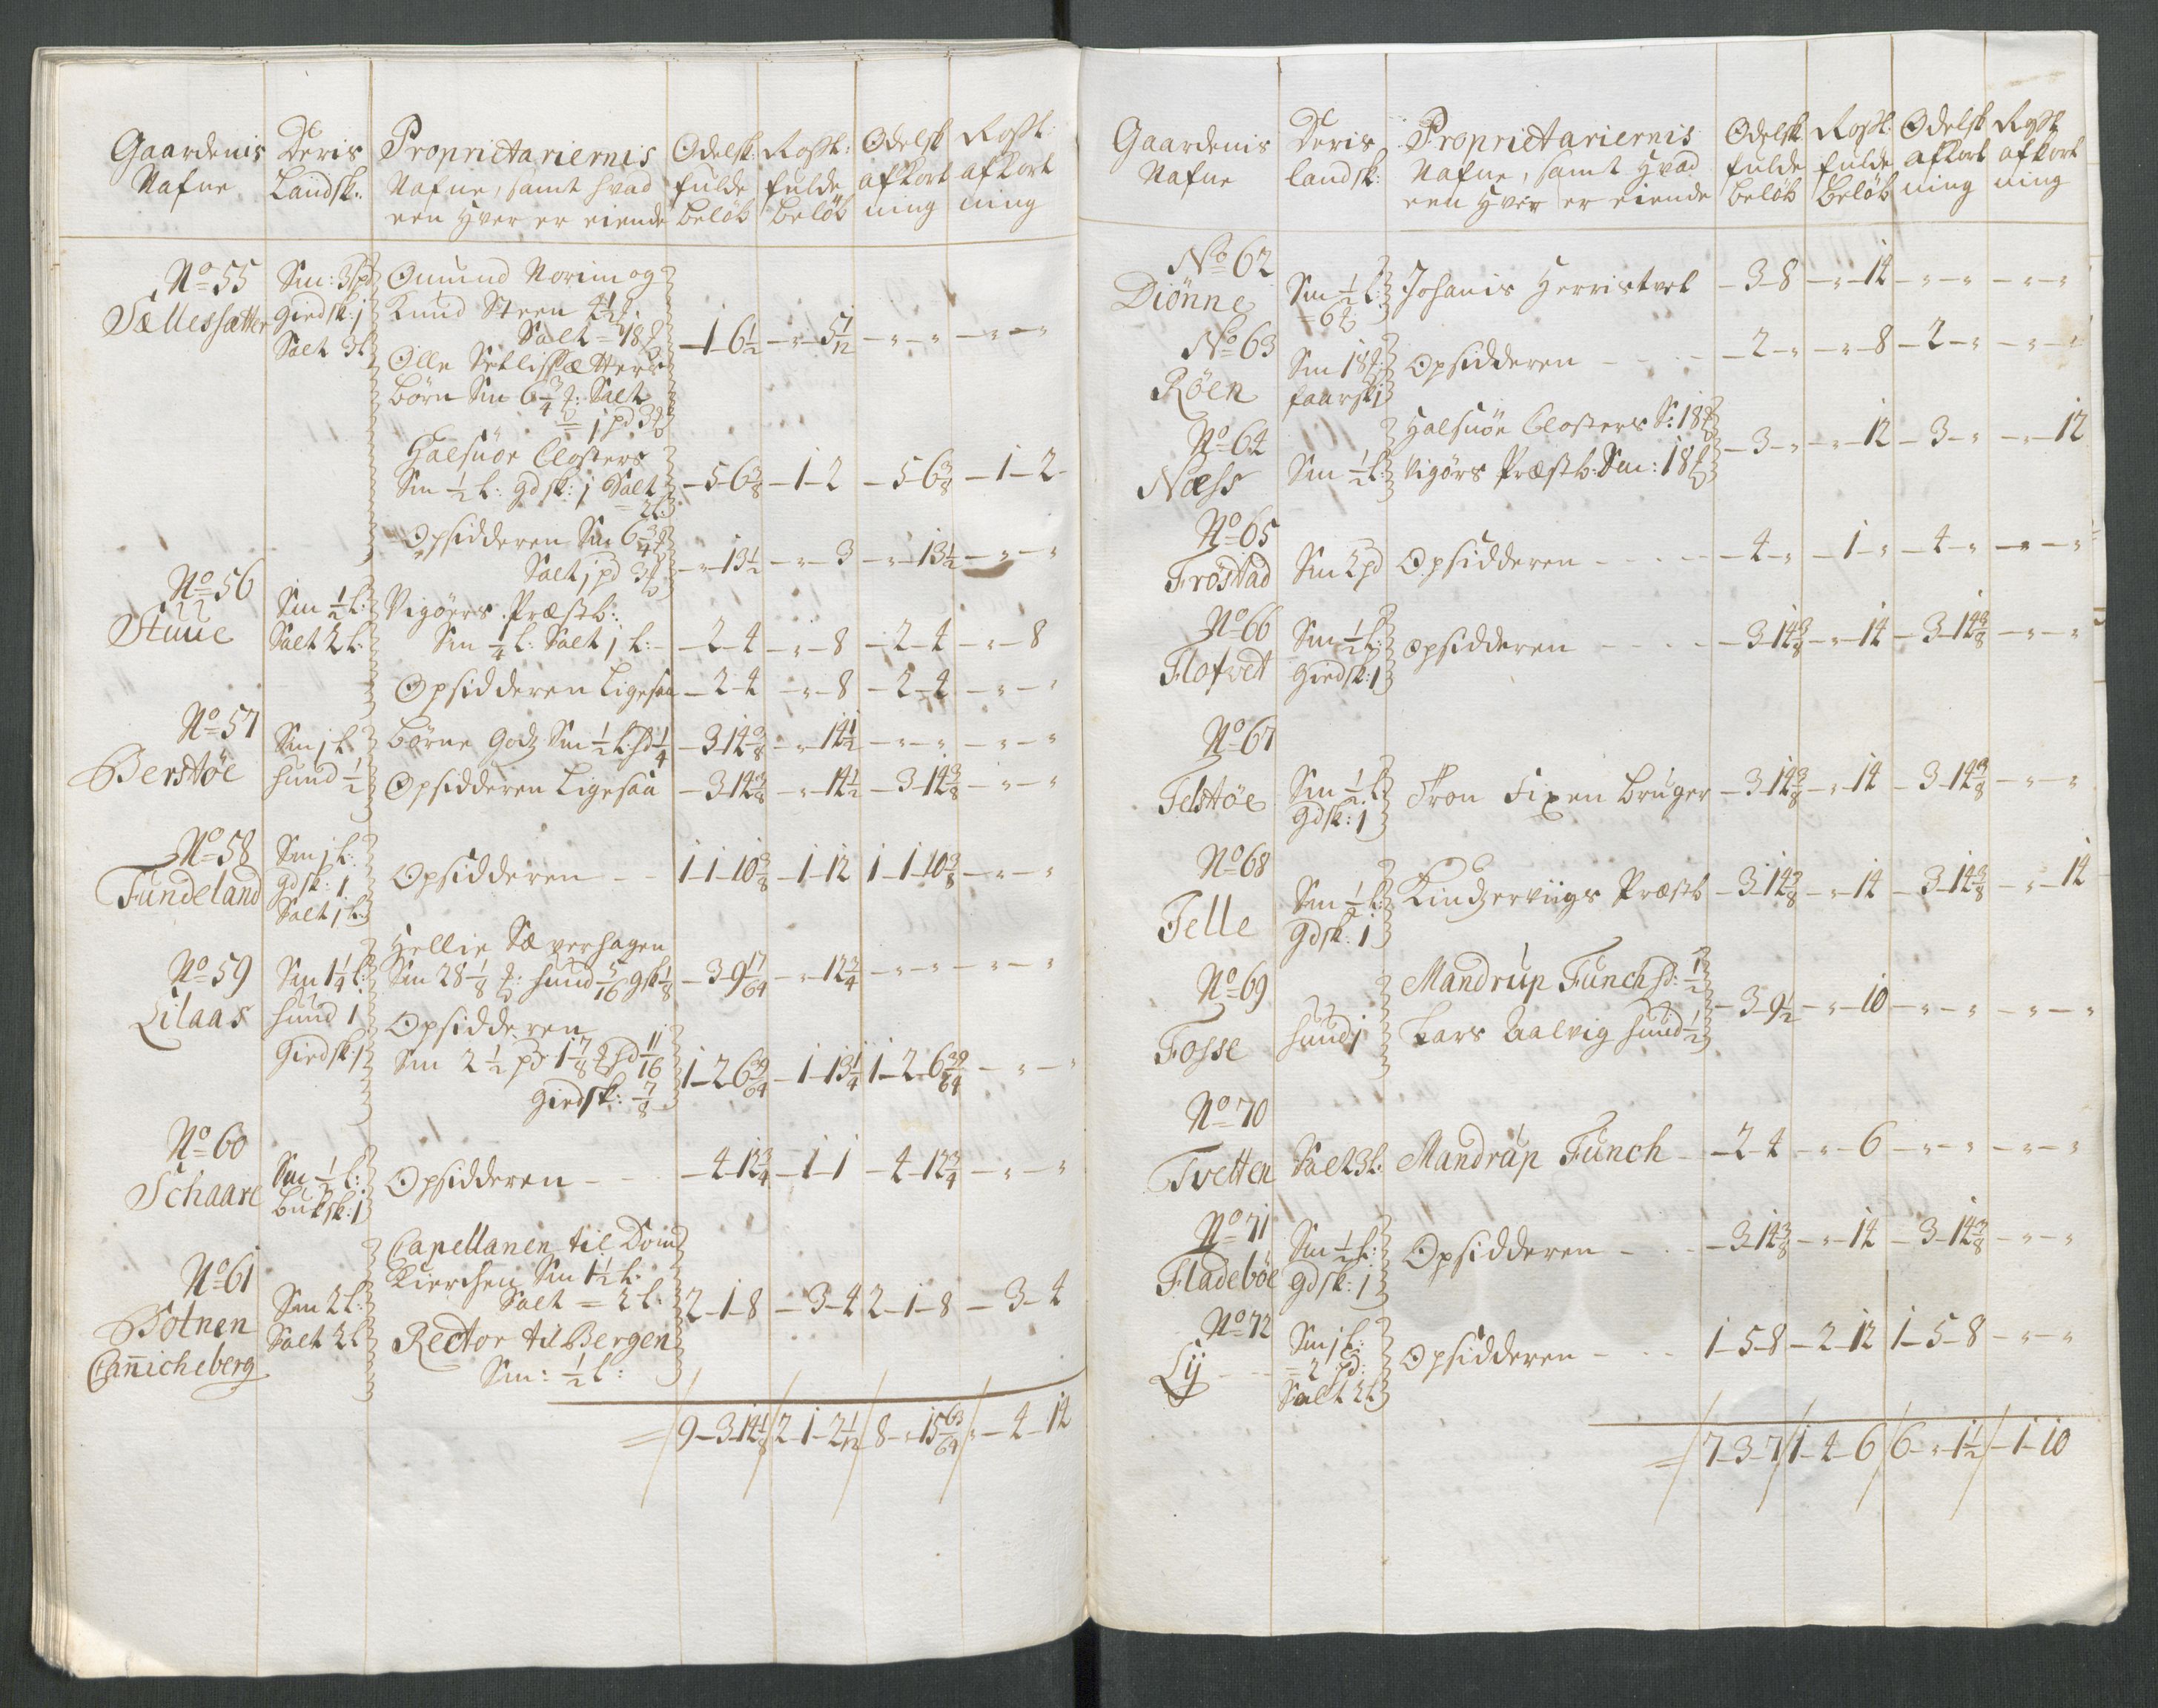 Gaardenis Nafne | Deris Landsk: | Proprietariernis Nafne, samt hvad een hver er eiende | Odelsk: fulde Beløb | Rostt: fulde beløb | Odelsk afkort ning | Rostt: afkort ning
No 55 Sællessætter | Sm: 3 pd giedsk: 1 Salt 3 l | Omund Norim og
Knud Steen 4½ ℔:
Salt = 18 ℔
Olle Sellissætters
børn Sm 6¾ ℔: Salt
= 1 pd 3 ℔ | -1-6½ | -"-5 1/12 | -"-" | -"-"
Halsnøe Closters
Sm ½ l: gdsk: 1 Salt
= 2 l: | -5-6⅜ | -1-2 | -5-6⅜ | -1-2-
Opsidderen Sm 6¾ ℔
Salt 1 pd 3 ℔ | -"-13½ | -"-3 | -"-13½ | -"-"
No 56 Stuue | Sm ½ l: Salt 2 l: | Vigøers Præstb:
Sm ¼ l: Salt 1 l: | -2-4 | -"-8 | -2-4 | -"-8
Opsidderen Ligesaa | -2-4 | -"-8 | -2-4 | -"-"
No 57 Berstøe | Sm 1 l: hund ½ | Børne Godz Sm ½ l: hd ¼ | -3-14⅜ | -"-14½ | -"-" | -"-"
Opsidderen Ligesaa | -3-14⅜ | -"-14½ | -3-14⅜ | -"-"
No 58 Fundeland | Sm 1 l: gdsk: 1 Salt 1 l: | Opsidderen | 1-1-10⅜ | -1-12 | 1-1-10⅜ | -"-"
No 59 Lilaas | Sm 1¼ l: hund 1 Giedsk: 1 | Hellie Sæverhagen
Sm 28⅛ ℔: hund 5/16 gsk ⅛ | -3-9 17/64 | -"-12¾ | -"-" | -"-"
Opsidderen
Sm 2½ pd 1⅞ ℔ hd 11/16
Giedsk: ⅞ | 1-2-6 39/64 | -1-13¼ | 1-2-6 39/64 | -"-"
No 60 Schaare | Sm ½ l: buksk: 1 | Opsidderen | -4-12¾ | -1-1 | -4-12¾ | -"-"
No 61 Botnen Cannicheberg | Sm 2 l: Salt 2 l | Capellanen til Dom
Kierchen Sm 1½ l:
Salt = 2 l:
Rector til Bergen
Sm: ½ l: | 2-1-8 | -3-4 | 2-1-8 | -3-4
= | 9-3-14⅛ | 2-1-2 1/12 | 8-"-15 63/64 | "-4-14
Gaardenis Nafne | Deris landsk: | Proprietariernis Nafne, samt hvad een hver er eiende | Odelsk fulde beløb | Rostt: fulde Beløb | Odelsk afkort ning | Rostt afkort ning
No 62 Diønne | Sm ½ l: = 6 ℔ | Johanis Herristvet | -3-8 | -"-14 | -"-" | -"-"
No 63 Røen | Sm 18 ℔: faarsk 1 | Opsidderen | -2-" | -"-8 | -2-" | -"-"
No 64 Næss | Sm ½ l: | Halsnøe Closters S: 18 ℔
Vigørs Præstb: Sm: 18 ℔ | -3-" | -"-12 | -3-" | -"-12
No 65 Frøstad | Sm 2 pd | Opsidderen | -4-" | -1-" | -4-" | -"-"
No 66 Flotvet | Sm ½ l: Giedsk: 1 | Opsidderen | -3-14⅜ | -"-14 | -3-14⅜ | -"-"
No 67 Felstøe | Sm ½ l: gdsk: 1 | Tron Fixen bruger | -3-14⅜ | -"-14 | -3-14⅜ | -"-"
No 68 Felle | Sm ½ l: gdsk: 1 | Kindzerviigs Præstb | -3-14⅜ | -"-14 | -3-14⅜ | -"-14
No 69 Fosse | hund 1 | Mandrup Funch hd: ½
Lars Aalvig hund ½ | -3-9½ | -"-10 | -"-" | -"-"
No 70 Tvetten | Salt 3 l: | Mandrup Funch | -2-4 | -"-6 | -"-" | -"-"
No 71 Fladebøe | Sm ½ l: gdsk: 1 | Opsidderen | -3-14⅜ | -"-14 | -3-14⅜ | -"-"
No 72 Lij | Sm 1 l: = 2 pd: Salt 2 l | Opsidderen | 1-5-8 | -2-12 | 1-5-8 | -"-"
= | 7-3-7 | 1-4-6 | 6-"-1½ | -1-10